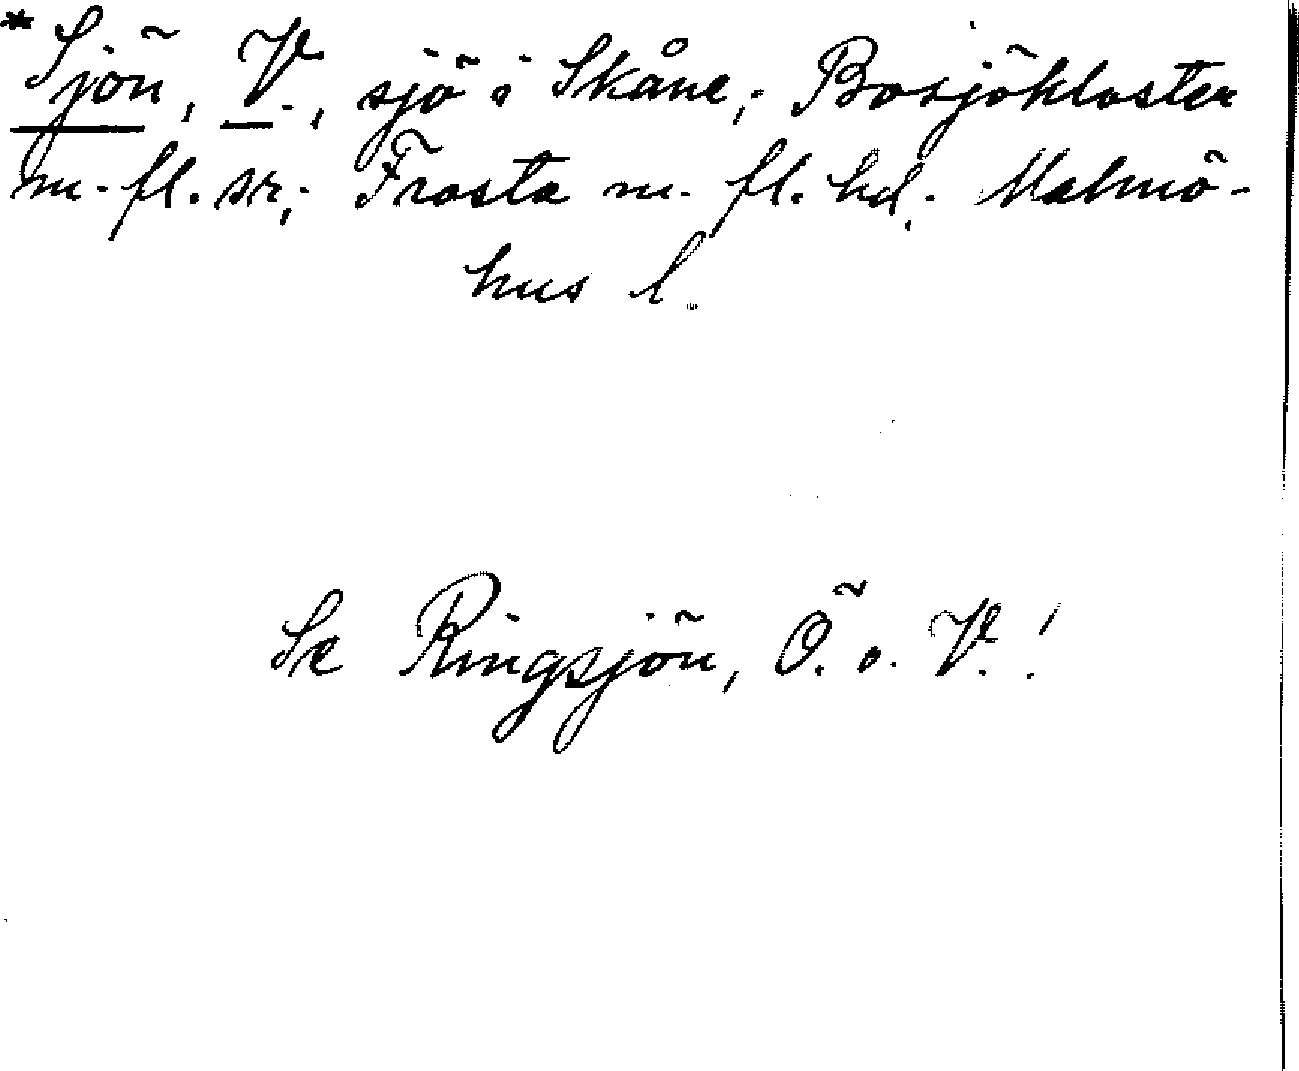 *Sjön, V., sjö i Skåne; Bosjökloster
m. fl. sr; Frosta m. fl. hd. Malmö-
hus l.
Se Ringsjön, Ö. o. V.!